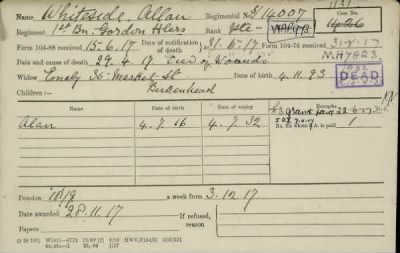 Name Whiteside, Allan Regimental No. S/14007 Case No.
Regiment 1st Bn. Gordon Hlers Rank Pte 1426
Form 104-88 received 15.6.17 Date of notification of death 31.5.17 Form 104-76 received 31.8.17
Date and cause of death 29.4.17 Died of Wounds MH7823
Widow Emily 36 Market St. Date of birth 4.11.93 DEAD
Children:— Birkenhead
Date of birth Date of expiry Remarks
Alan 4.7.16 4.7.32 £3 grant
No. for whom S.A. is paid 1
Pension 18/9 a week from 3.12.17
Date awarded 28.11.17 If refused, reason
Papers